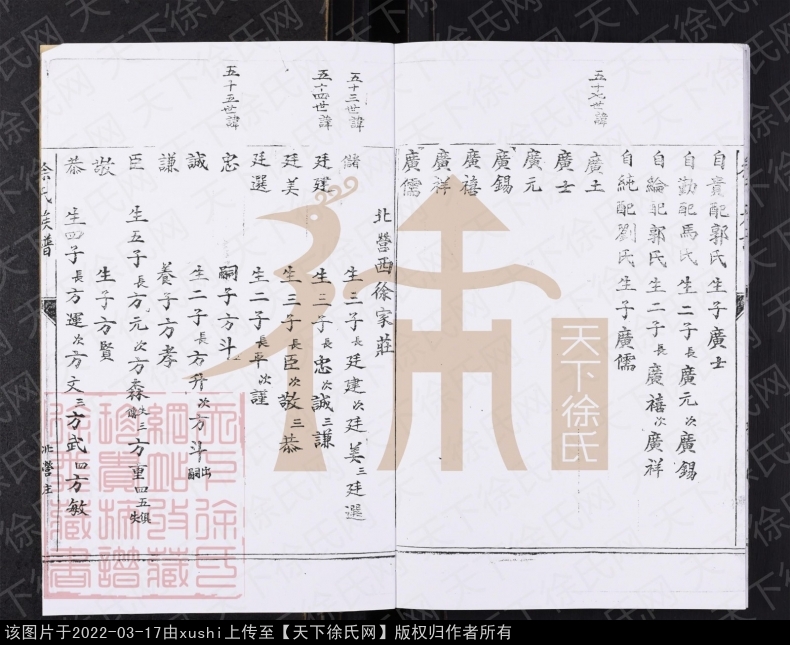 自貴配郭氏生子廣士
自勤配馬氏生二子長廣元次廣錫
自綸配郭氏生二子長廣禧次廣祥
自純配劉氏生子廣儒
廣土
廣士
廣元
廣錫
廣禧
廣祥
廣儒
北營西徐家莊
五十三世諱
儲 生三子長廷建次廷美三廷選
五十四世諱
廷建 生三子長忠次誠三謙
廷美 生三子長臣次敬三恭
廷選 生二子長平次謹
五十五世諱
忠 嗣子方斗
誠 生二子長方升次方斗出嗣
謙 養子方孝
臣 生五子長方元次方森失傳三方重四五俱失
敬 生子方賢
恭 生四子長方運次方文三方武四方敏
徐氏族譜
北營庄
天下徐氏
天下徐氏网
该图片于2022-03-17由xushi上传至【天下徐氏网】版权归作者所有